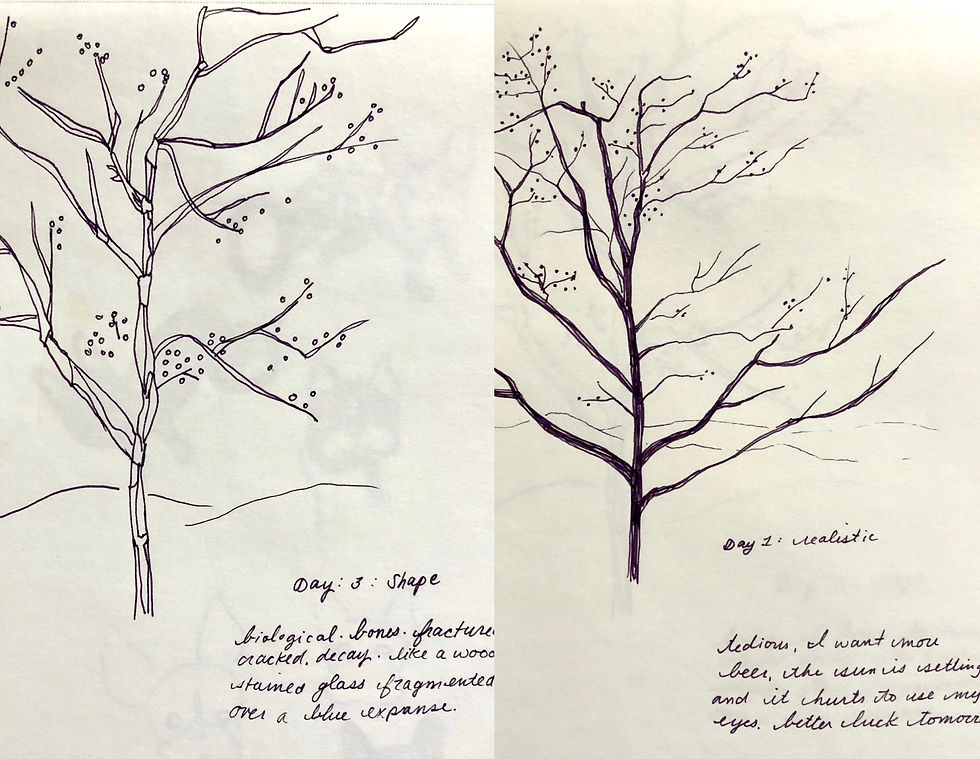 Day: 3: Shape
biological. bones. fracture
cracked, decay. like a wood
stained glass fragmented
over a blue expanse.
Day 1: realistic
tedious, I want more
beer, the sun is setting
and it hurts to use my
eyes. better luck tomorr